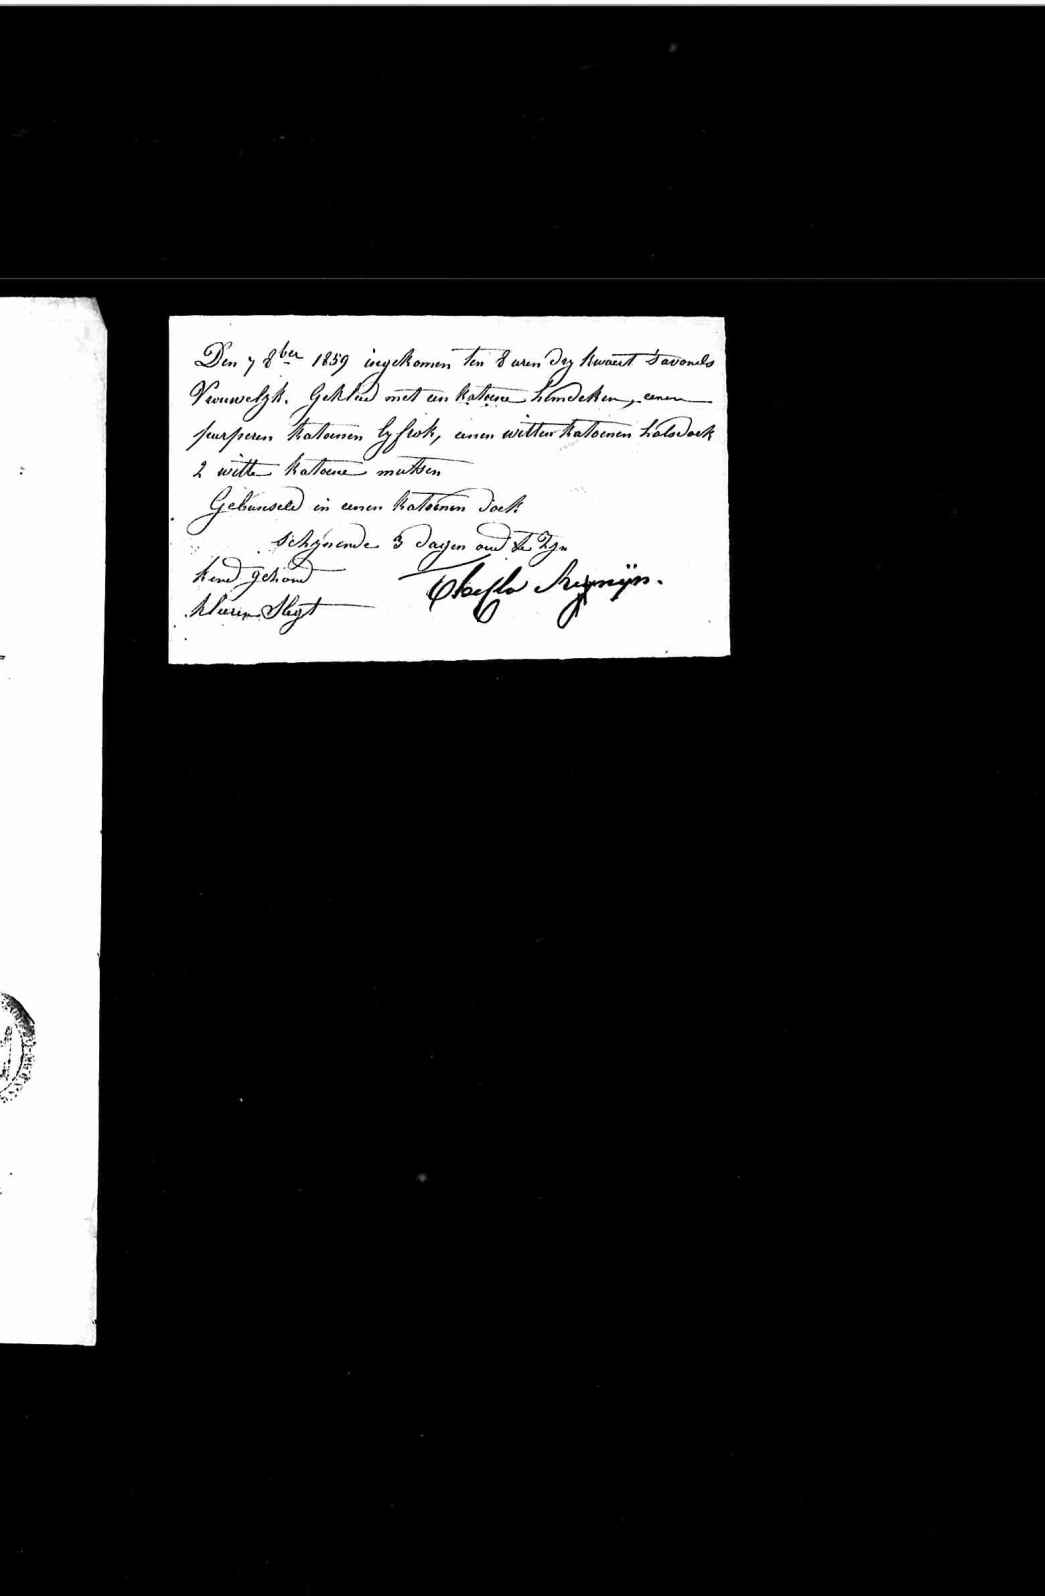 Den 7 8ber 1859 ingekomen ten 8 uren dry kwaert s'avonds
Vrouwelyk. Gekleed met een katoene hemdeken, eenen
purperen katoenen lyfrok, eenen witten katoenen halsdoek
2 witte katoene mutsen
Gebunseld in eenen katoenen doek
schynende 3 dagen oud te zyn
kend gezond
kleeren slegt